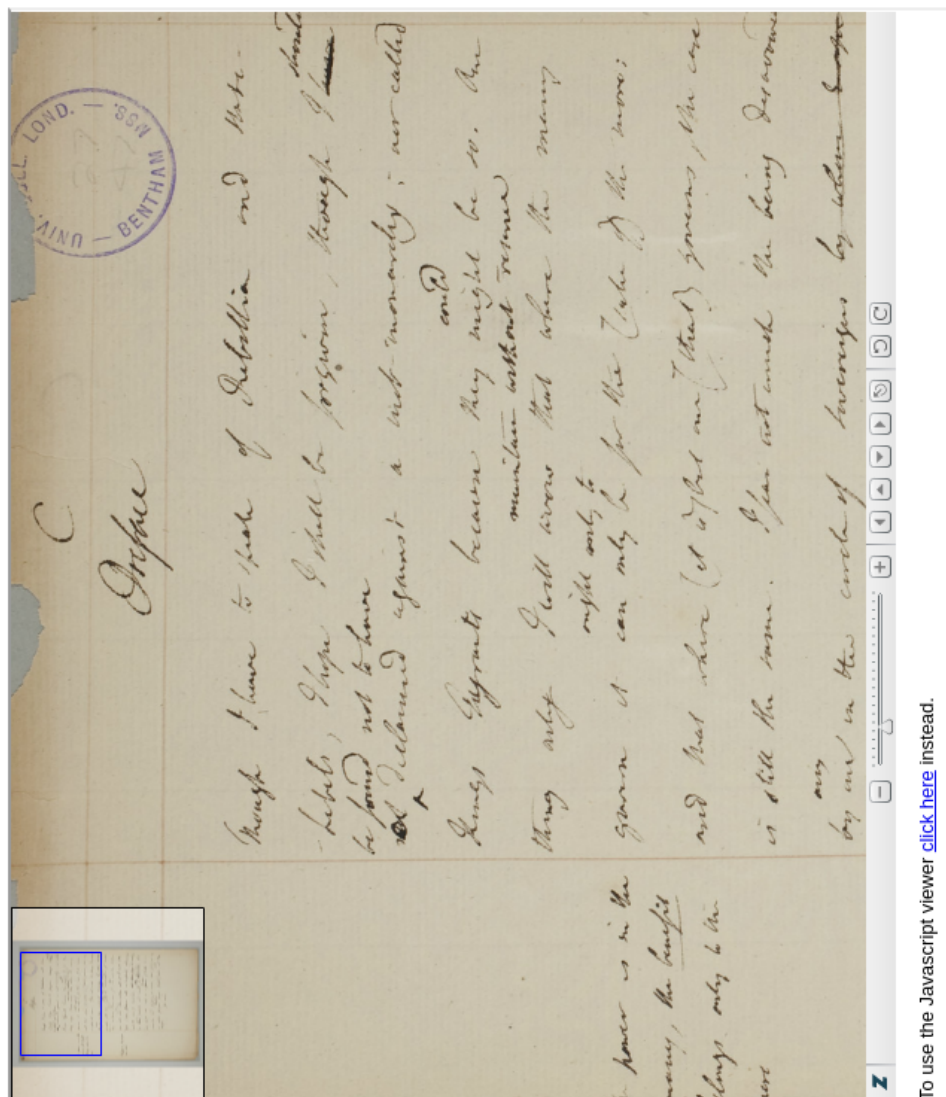 UNIV. COLL. LOND. — MSS. — BENTHAM
C
Preface
Though I have to speak of Rebellion and
Rebels, I hope I shall be forgiven, though I have should
be found not to have
not declaimed against a mob-monarchy; nor called
Kings Tyrants because they might could be so. One
maintain without reserve
thing only I will avow that where the many
ought only to
govern it can only be for the sake of the more:
and that where (as is) but one (that) governs, the case
is still the same. I fear not much the being disavowed
by me in the circle of sovereigns by whom
any
power is in the
many, the benefit
only to
To use the Javascript viewer click here instead.